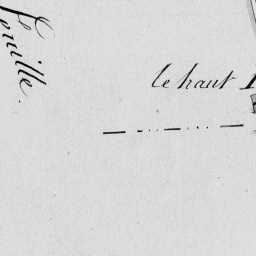 Feuille.
le haut